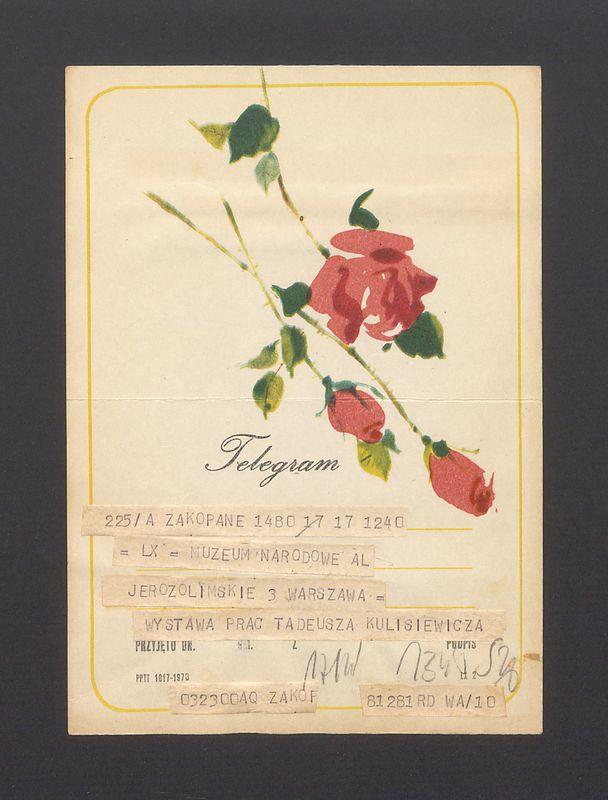 Telegram
225/A ZAKOPANE 1480 17 17 1240
= LX = MUZEUM NARODOWE AL
JEROZOLIMSKIE 3 WARSZAWA =
WYSTAWA PRAC TADEUSZA KULISIEWICZA
PRZYJĘTO DN. PODPIS
PPTT 1017-1970
032300AQ ZAKOP
81281RD WA/10